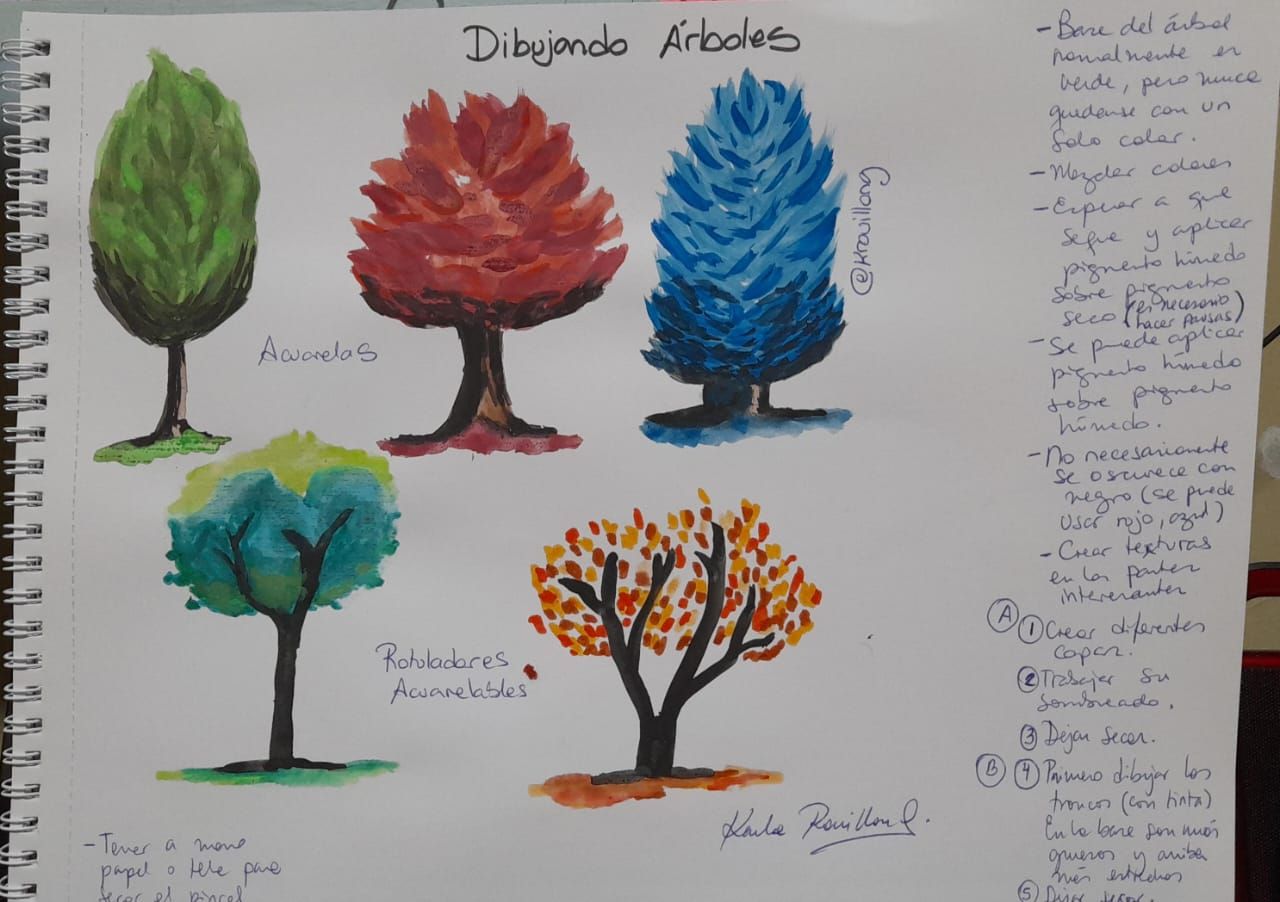 Dibujando Árboles
@krouillong
Acuarelas
Rotuladores
Acuarelables
Karla Rouillon G.
- Tener a mano
papel o tela para
secar el pincel
- Base del árbol
normalmente es
verde, pero nunca
quedense con un
solo color.
- Mezclar colores
- Esperar a que
seque y aplicar
pigmento húmedo
sobre pigmento
seco (es necesario
hacer pausas)
- Se puede aplicar
pigmento húmedo
sobre pigmento
húmedo.
- No necesariamente
se oscurece con
negro (se puede
usar rojo, azul)
- Crear texturas
en las partes
interesantes
A 1 Crear diferentes
copas.
2 Trabajar su
sombreado.
3 Dejar secar.
B 4 Primero dibujar los
troncos (con tinta)
En la base son más
gruesos y arriba
más estrechos
5 Dejar secar.